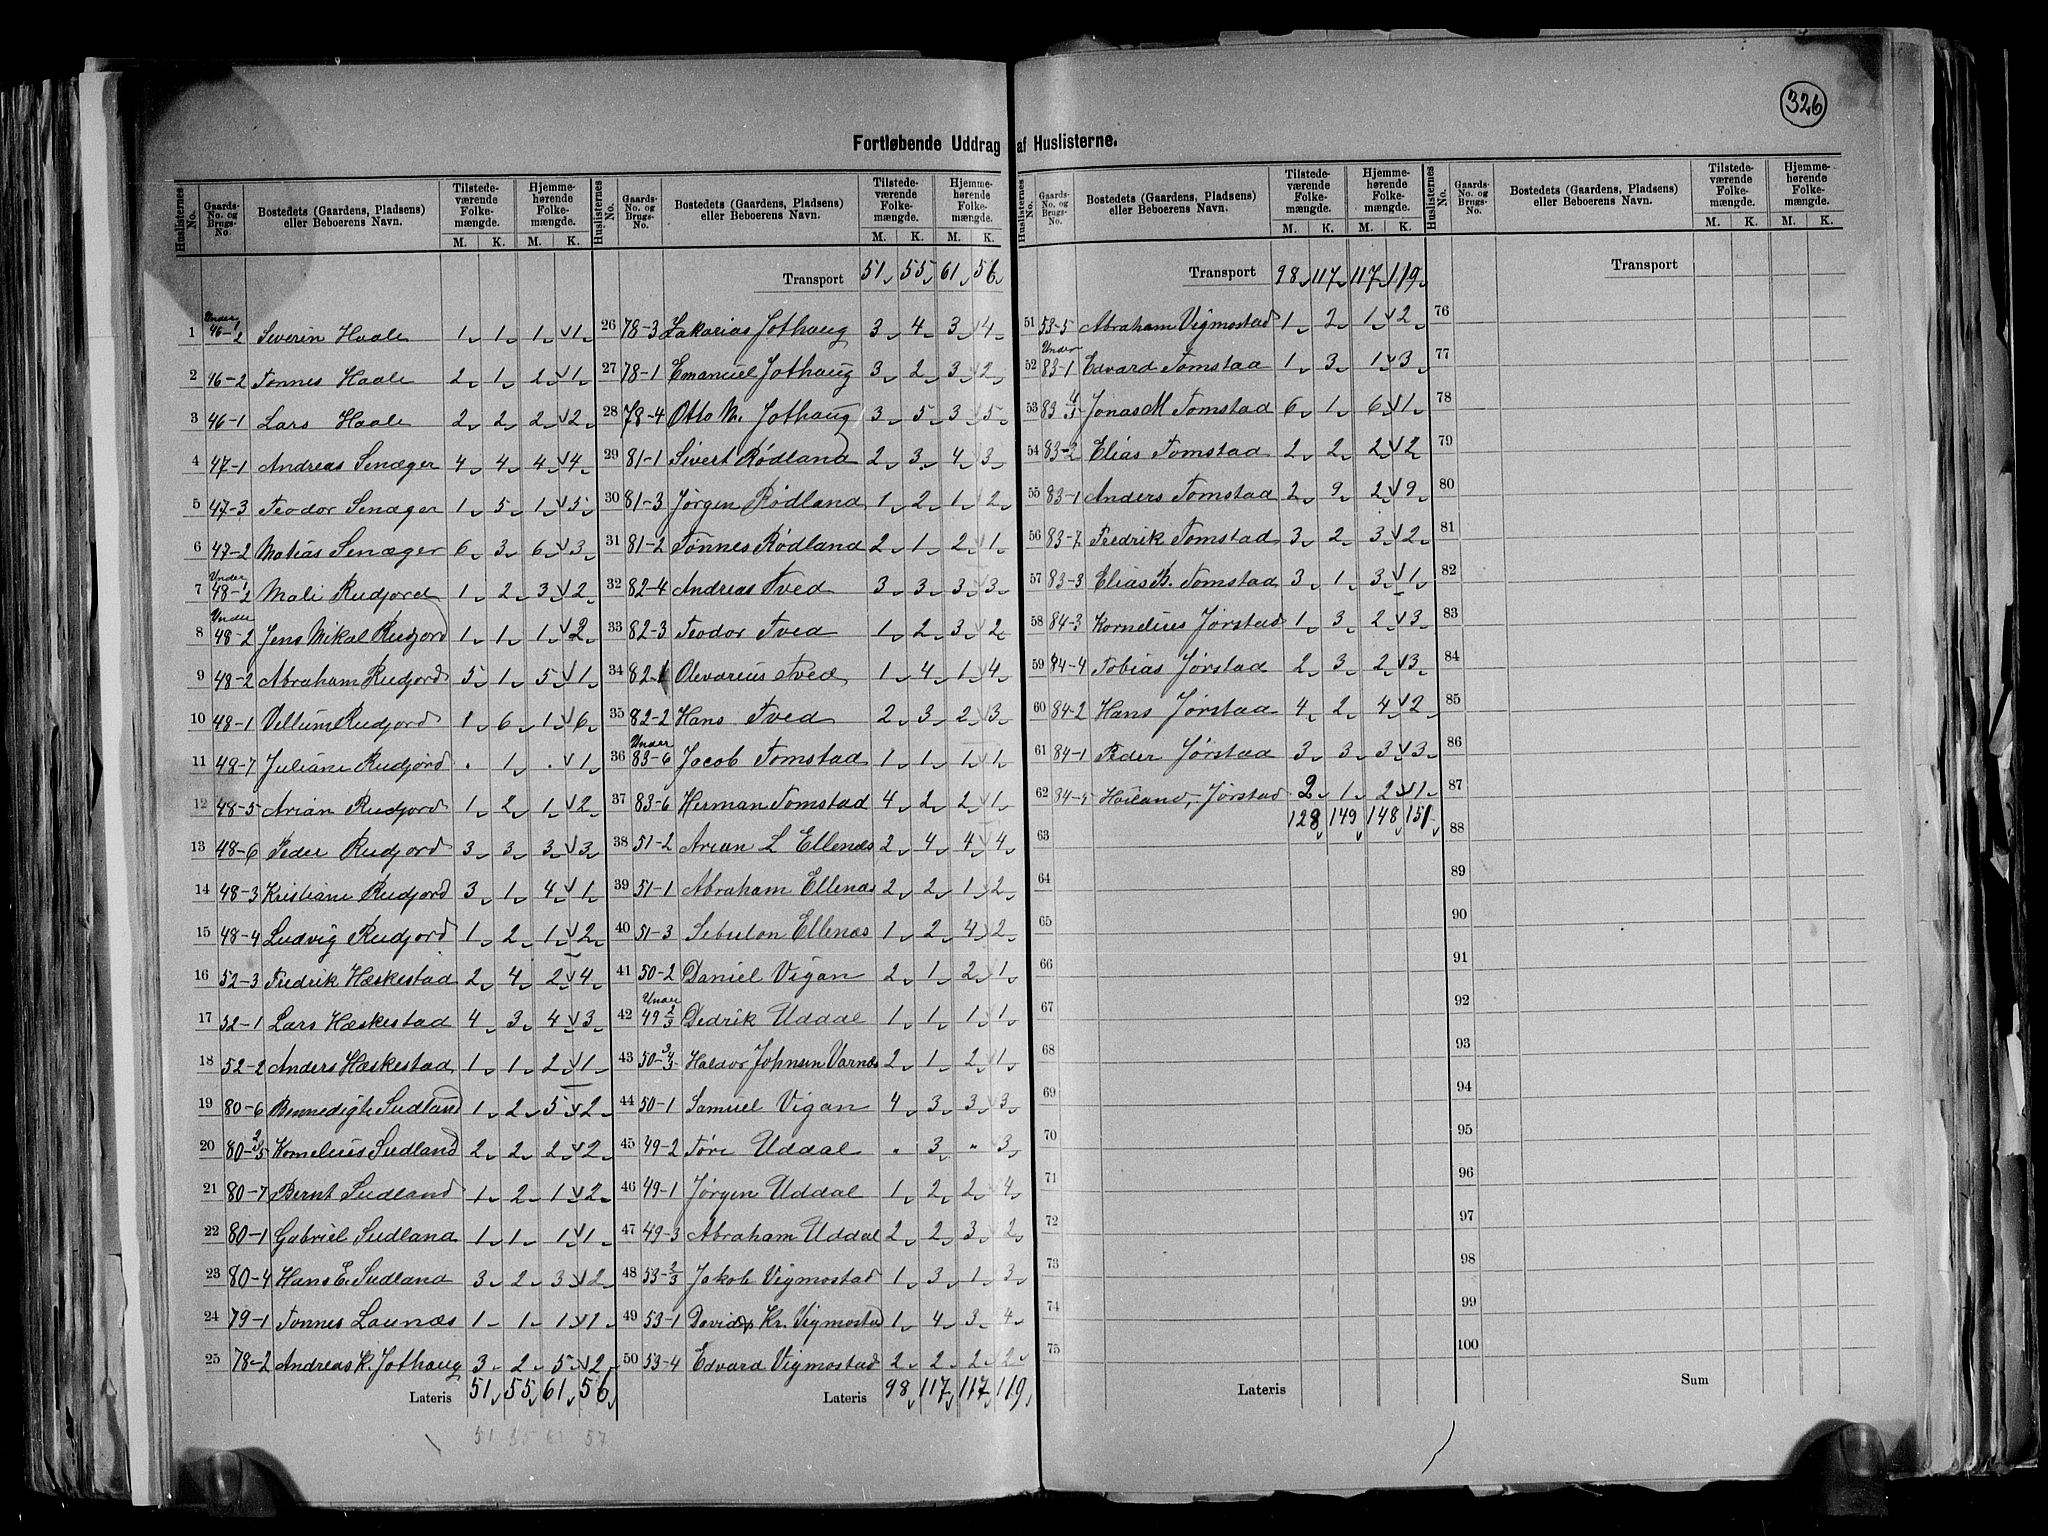 326
Fortløbende Uddrag af Huslisterne.
Huslisternes No. Gaards-No. og Brugs-No. Bostedets (Gaardens, Pladsen) eller Beboerens Navn. Tilstedeværende Folkemængde. M. K. Hjemmehørende Folkemængde. M. K.
1 Under 46-1/2 Severin Haale 1 1 1 1
2 46-2 Tønnes Haale 2 1 2 1
3 46-1 Lars Haale 2 2 2 2
4 47-1 Andreas Senæger 4 4 4 4
5 47-3 Teodor Senæger 1 5 1 5
6 47-2 Matias Senæger 6 3 6 3
7 Under 48-1/2 Mali Rudjord 1 2 3 2
8 Under 48-2 Jens Mikal Rudjord 1 1 1 2
9 48-2 Abraham Rudjord 5 1 5 1
10 48-1 Vellum Rudjord 1 6 1 6
11 48-7 Juliane Rudjord . 1 . 1
12 48-5 Arian Rudjord 1 2 1 2
13 48-6 Peder Rudjord 3 3 3 3
14 48-3 Kristiane Rudjord 3 1 4 1
15 48-4 Ludvig Rudjord 1 2 1 2
16 52-3 Fredrik Hæskestad 2 4 2 4
17 52-1 Lars Hæskestad 4 3 4 3
18 52-2 Anders Hæskestad 1 1 2 1
19 80-6 Bennedigte Sudland 1 2 5 2
20 80-2/5 Kornelius Sudland 2 2 2 2
21 80-7 Bernt Sudland 1 2 1 2
22 80-1 Gabriel Sudland 1 1 1 1
23 80-4 Hans E. Sudland 3 2 3 2
24 79-1 Tønnes Launæs 1 1 1 1
25 78-2 Andreas K. Jothaug 3 2 5 2
Lateris 51 55 61 56
51 55 61 57
Huslisternes No. Gaards-No. og Brugs-No. Bostedets (Gaardens, Pladsen) eller Beboerens Navn. Tilstedeværende Folkemængde. M. K. Hjemmehørende Folkemængde. M. K.
Transport 51 55 61 56
26 78-3 Zakarias Jothaug 3 4 3 4
27 78-1 Emanuel Jothaug 3 2 3 2
28 78-4 Otto M. Jothaug 3 5 3 5
29 81-1 Sivert Rødland 2 3 4 3
30 81-3 Jørgen Rødland 1 2 1 2
31 81-2 Tønnes Rødland 2 1 2 1
32 82-4 Andreas Tved 3 3 3 3
33 82-3 Teodor Tved 1 2 3 2
34 82-1 Olevarius Tved 1 4 1 4
35 82-2 Hans Tved 2 3 2 3
36 Under 83-6 Jacob Tomstad 1 1 1 1
37 83-6 Herman Tomstad 4 2 2 1
38 51-2 Arian L Ellenæs 2 4 4 4
39 51-1 Abraham Ellenæs 2 2 1 2
40 51-3 Sebulon Ellenæs 1 2 4 2
41 50-2 Daniel Vigan 2 1 2 1
42 Under 49 2/3 Dedrik Uddal 1 1 1 1
43 50-3/4 Haldor Johnsen Varnæs 2 1 2 1
44 50-1 Samuel Vigan 4 3 3 3
45 49-2 Tøre Uddal " 3 " 3
46 49-1 Jørgen Uddal 1 2 2 4
47 49-3 Abraham Uddal 2 2 3 2
48 53-2/3 Jakob Vigmostad 1 3 1 3
49 53-1 David Kr. Vigmostad 1 4 3 4
50 53-4 Edvard Vigmostad 2 2 2 2
Lateris 98 117 117 119
Huslisternes No. Gaards-No. og Brugs-No. Bostedets (Gaardens, Pladsen) eller Beboerens Navn. Tilstedeværende Folkemængde. M. K. Hjemmehørende Folkemængde. M. K.
Transport 98 117 117 119
51 53-5 Abraham Vigmostad 1 2 1 2
52 Under 83-1 Edvard Tomstad 1 3 1 3
53 83 4/5 Jonas M Tomstad 6 1 6 1
54 83-2 Elias Tomstad 2 2 2 2
55 83-1 Anders Tomstad 2 9 2 9
56 83-7 Fredrik Tomstad 3 2 3 2
57 83-3 Elias B. Tomstad 3 1 3 1
58 84-3 Kornelius Jørstad 1 3 2 3
59 84-4 Tobias Jørstad 2 3 2 3
60 84-2 Hans Jørstad 4 2 4 2
61 84-1 Peder Jørstad 3 3 3 3
62 84-5 Høiland, Jørstad 2 1 2 1
128 149 148 151
63
64
65
66
67
68
69
70
71
72
73
74
75
Lateris
Huslisternes No. Gaards-No. og Brugs-No. Bostedets (Gaardens, Pladsen) eller Beboerens Navn. Tilstedeværende Folkemængde. M. K. Hjemmehørende Folkemængde. M. K.
Transport
76
77
78
79
80
81
82
83
84
85
86
87
88
89
90
91
92
93
94
95
96
97
98
99
100
Sum